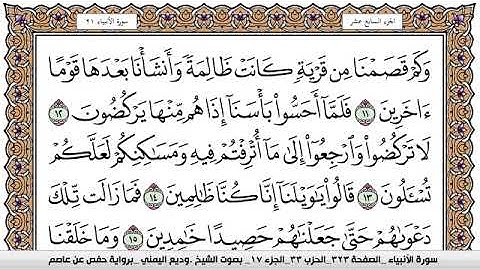 الجزء السابع عشر
سورة الأنبياء ٢١
وَكَمْ قَصَمْنَا مِن قَرْيَةٍ كَانَتْ ظَالِمَةً وَأَنشَأْنَا بَعْدَهَا قَوْمًا
ءَاخَرِينَ ١١ فَلَمَّآ أَحَسُّوا۟ بَأْسَنَآ إِذَا هُم مِّنْهَا يَرْكُضُونَ ١٢
لَا تَرْكُضُوا۟ وَٱرْجِعُوٓا۟ إِلَىٰ مَآ أُتْرِفْتُمْ فِيهِ وَمَسَٰكِنِكُمْ لَعَلَّكُمْ
تُسْـَٔلُونَ ١٣ قَالُوا۟ يَٰوَيْلَنَآ إِنَّا كُنَّا ظَٰلِمِينَ ١٤ فَمَا زَالَت تِّلْكَ
دَعْوَىٰهُمْ حَتَّىٰ جَعَلْنَٰهُمْ حَصِيدًا خَٰمِدِينَ ١٥ وَمَا خَلَقْنَا
سورة الأنبياء _الصفحة ٣٢٣_ الحزب ٣٣_ الجزء ١٧_ بصوت الشيخ_ وديع اليمني _برواية حفص عن عاصم